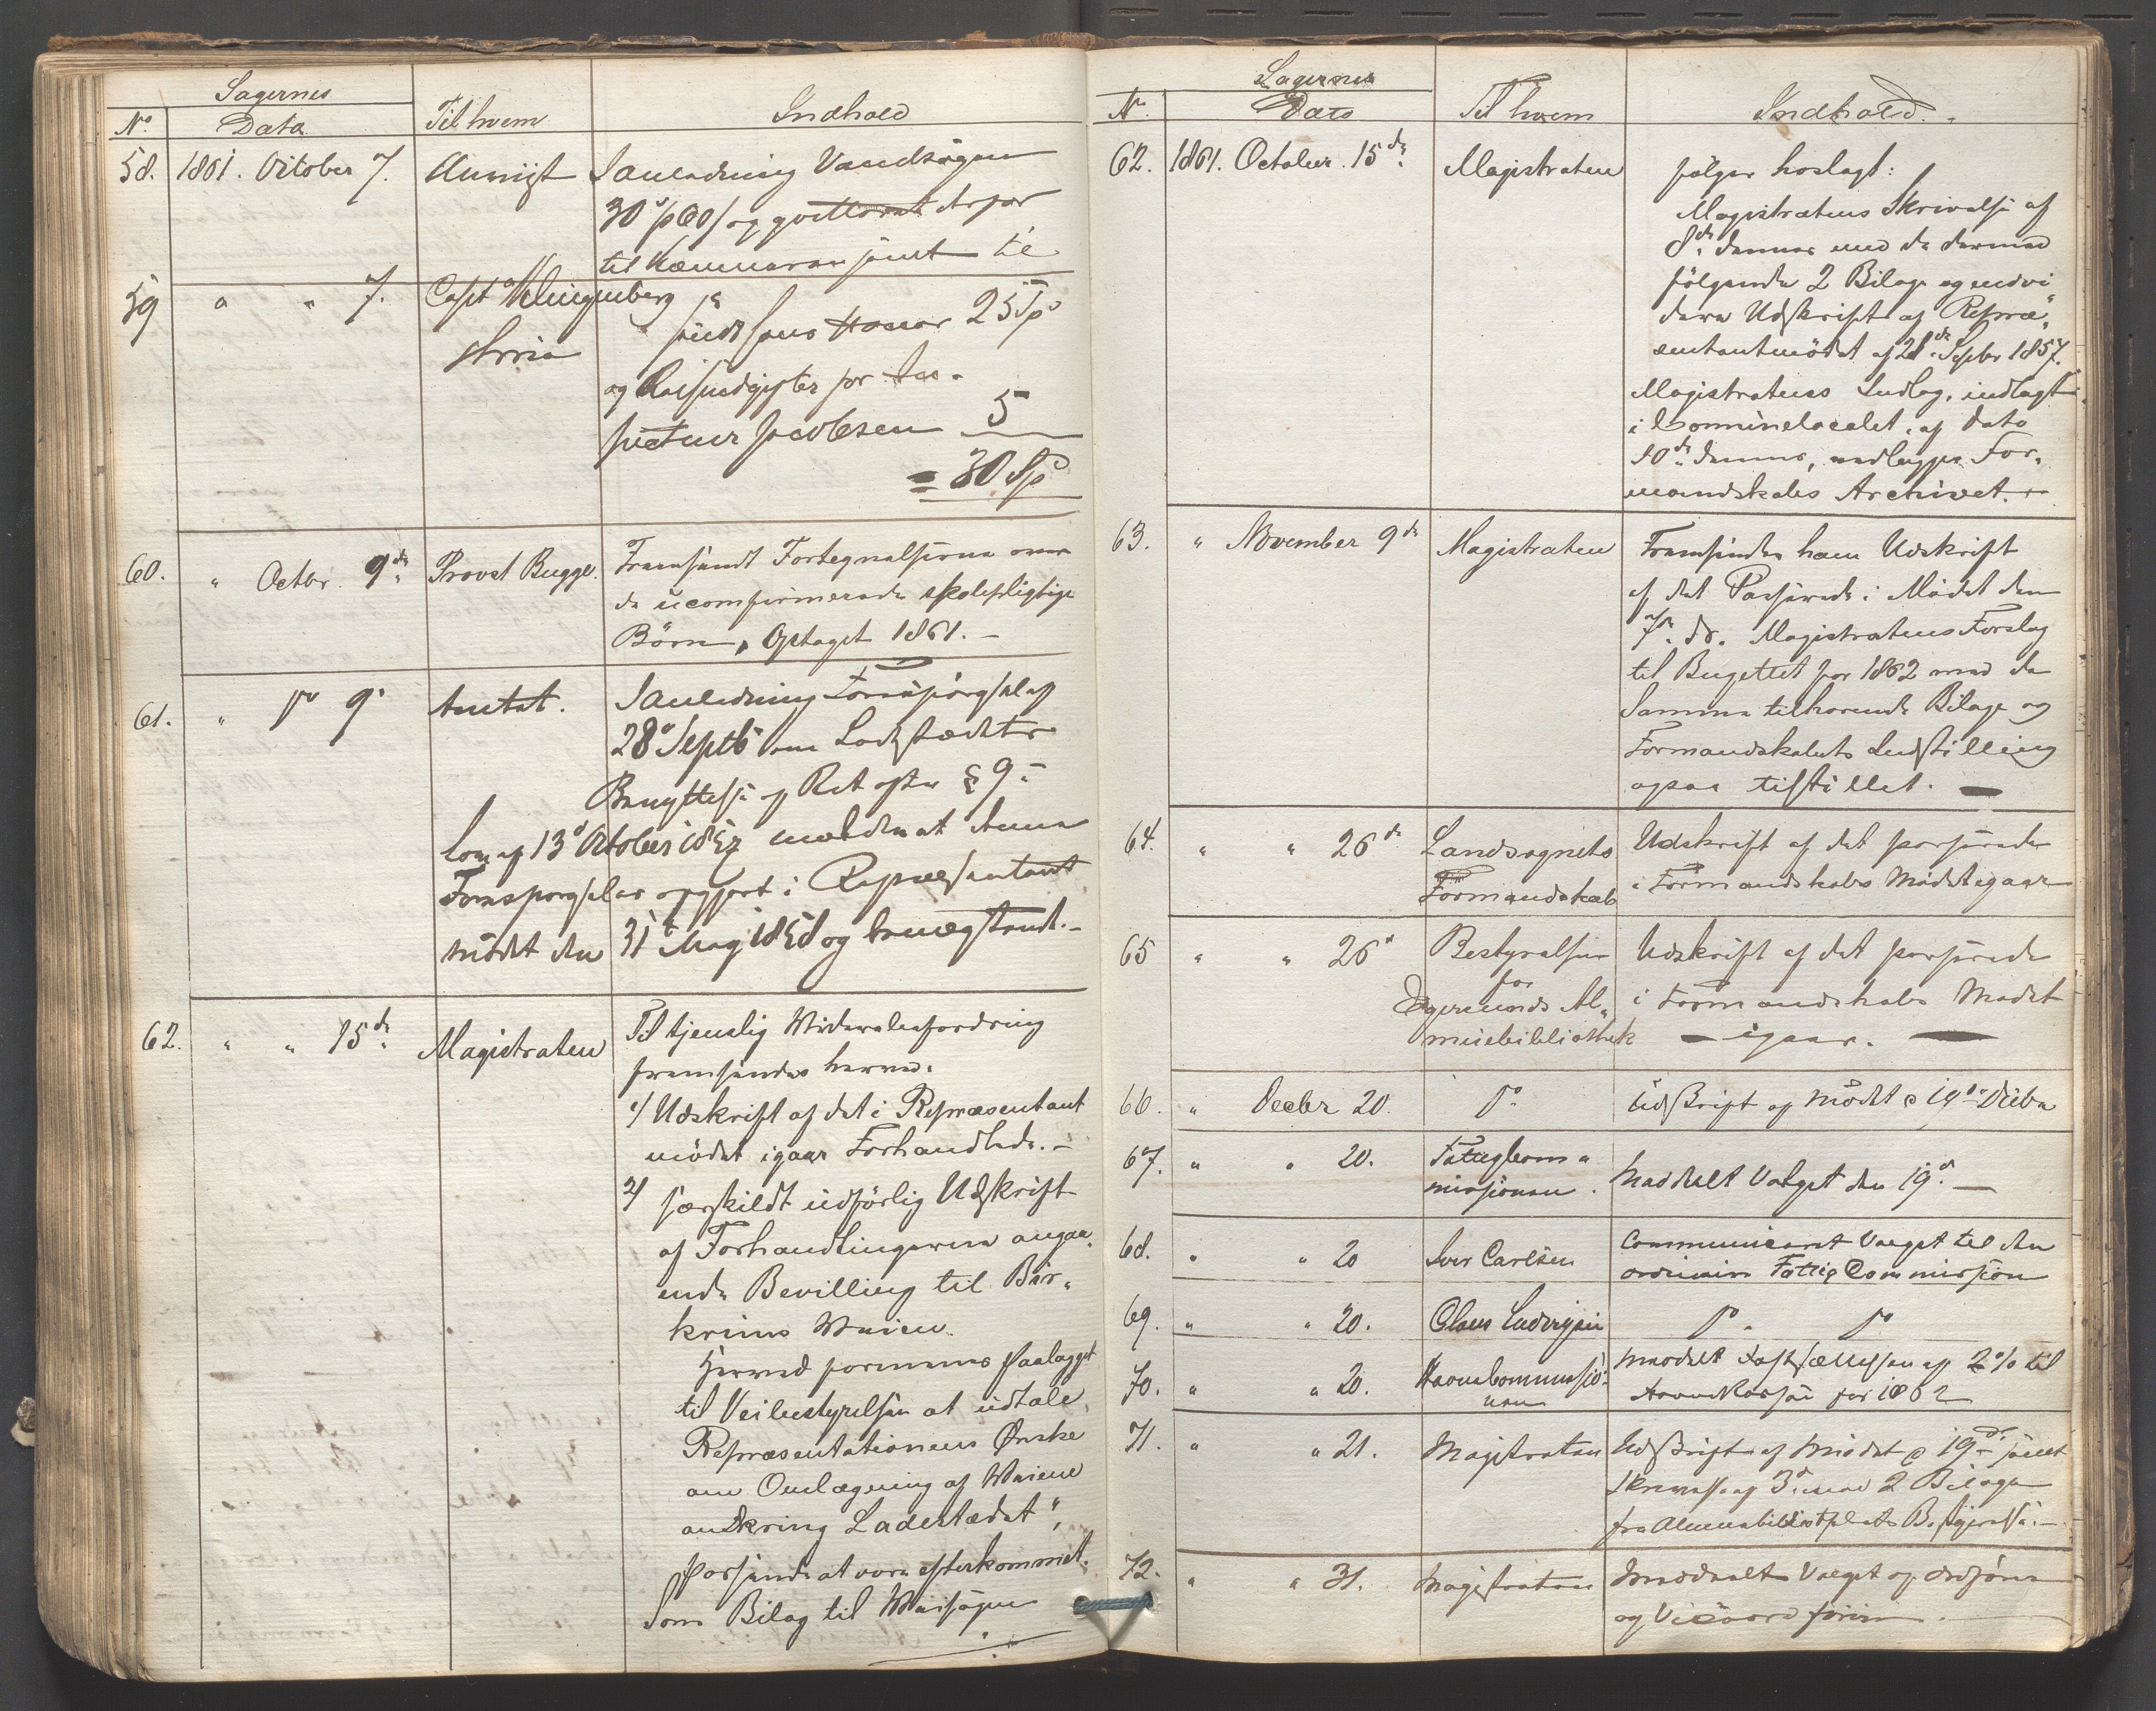 Sagernes
No. Data Til hvem Indhold
58. 1861. October 7. Anvist I anledning Vandsagen
30 og derfor
til Kæmneren samt til
59 " " 7. Capt Klingenberg
25 Sp
og Reiseudgifter for In-
specteur Jacobsen 5
= 30 Sp
60. " Octbr. 9de Provst Bugge. Fremsendt Fortegnelserne over
de uconfirmerede skolepligtige
Børn, Optaget 1861. -
61. " do 9. Amtet. I anledning Forespørgsel af
28de Septb om Ladestædets
Benyttelse af Ret efter § 9 i
Lov af 13de October 1857 meldes at denne
Forespørgsel er afgjort i Repræsentant
mødet den 31te May 1858 og benægtende. -
62. " " 15de Magistraten Til tjenslig Viderebefordring
fremsendes herved:
1/ Udskrift af det i Repræsentant
mødet igaar Forhandlede. -
2/ særskildt udførlig Udskrift
af Forhandlingerne angaa-
ende Bevilling til Bir-
krims Veien.
Herved formenes Paalægget
til Veibestyrelsen at udtale
Repræsentationens Ønske
om Omlægning af Veiene
omkring Ladestædet",
forsaavidt at være efterkommet.
Som Bilag til Veisagen
Sagernes
No. Dato Til hvem Indhold.
62. 1861. October. 15de Magistraten følger hoslagt:
Magistratens Skrivelse af
8de dennes med de dermed
følgende 2 Bilage og endvi
dere Udskrift af Repræ-
sentantmødet af 28de Septbr 1857.
Magistratens Indlæg, indlagt
i Commünelocalet, af Dato
10de dennes, vedlægges For-
mandskabs Archivet.
63. " November 9de Magistraten Fremsendes ham Udskrift
af det Passerede i Mødet den
7de ds. Magistratens Forslag
til Bugettet for 1862 med de
Samme tilhørende Bilage og
Formandskabets Indstilling
ogsaa tilstillet. -
64. " " 26de Landsognets Udskrift af det passerede
Formandskab i Formandskabs Mødet igaar
65 " " 26de Bestyrelsen Udskrift af det passerede
for i Formandskabs Mødet
Egersunds Al- - igaar. -
muebibliothek
66. " Decbr 20. do Udskrift af Mødet d 19de Decbr
67. " " 20. Fattigcom-
missionen. Meddelt Valget den 19de -
68. " " 20 Iver Carlsen Communiceret Valget til den
ordinaire Fattig Commission
69. " " 20. Olaus Ludvigsen do do
70. " " 20. Havnecommissio- Meddelt Fastsættelsen af 2% til
nen Havnekassen for 1862
71. " " 21. Magistraten Udskrift af Mødet d 19de samt
Skrivelse af 3de med 2 Bilage
fra Almuebibliothekets Bestyrelse. -
72. " " 31. Magistraten Meddeelt Valget af Ordfører
og Viceordfører.